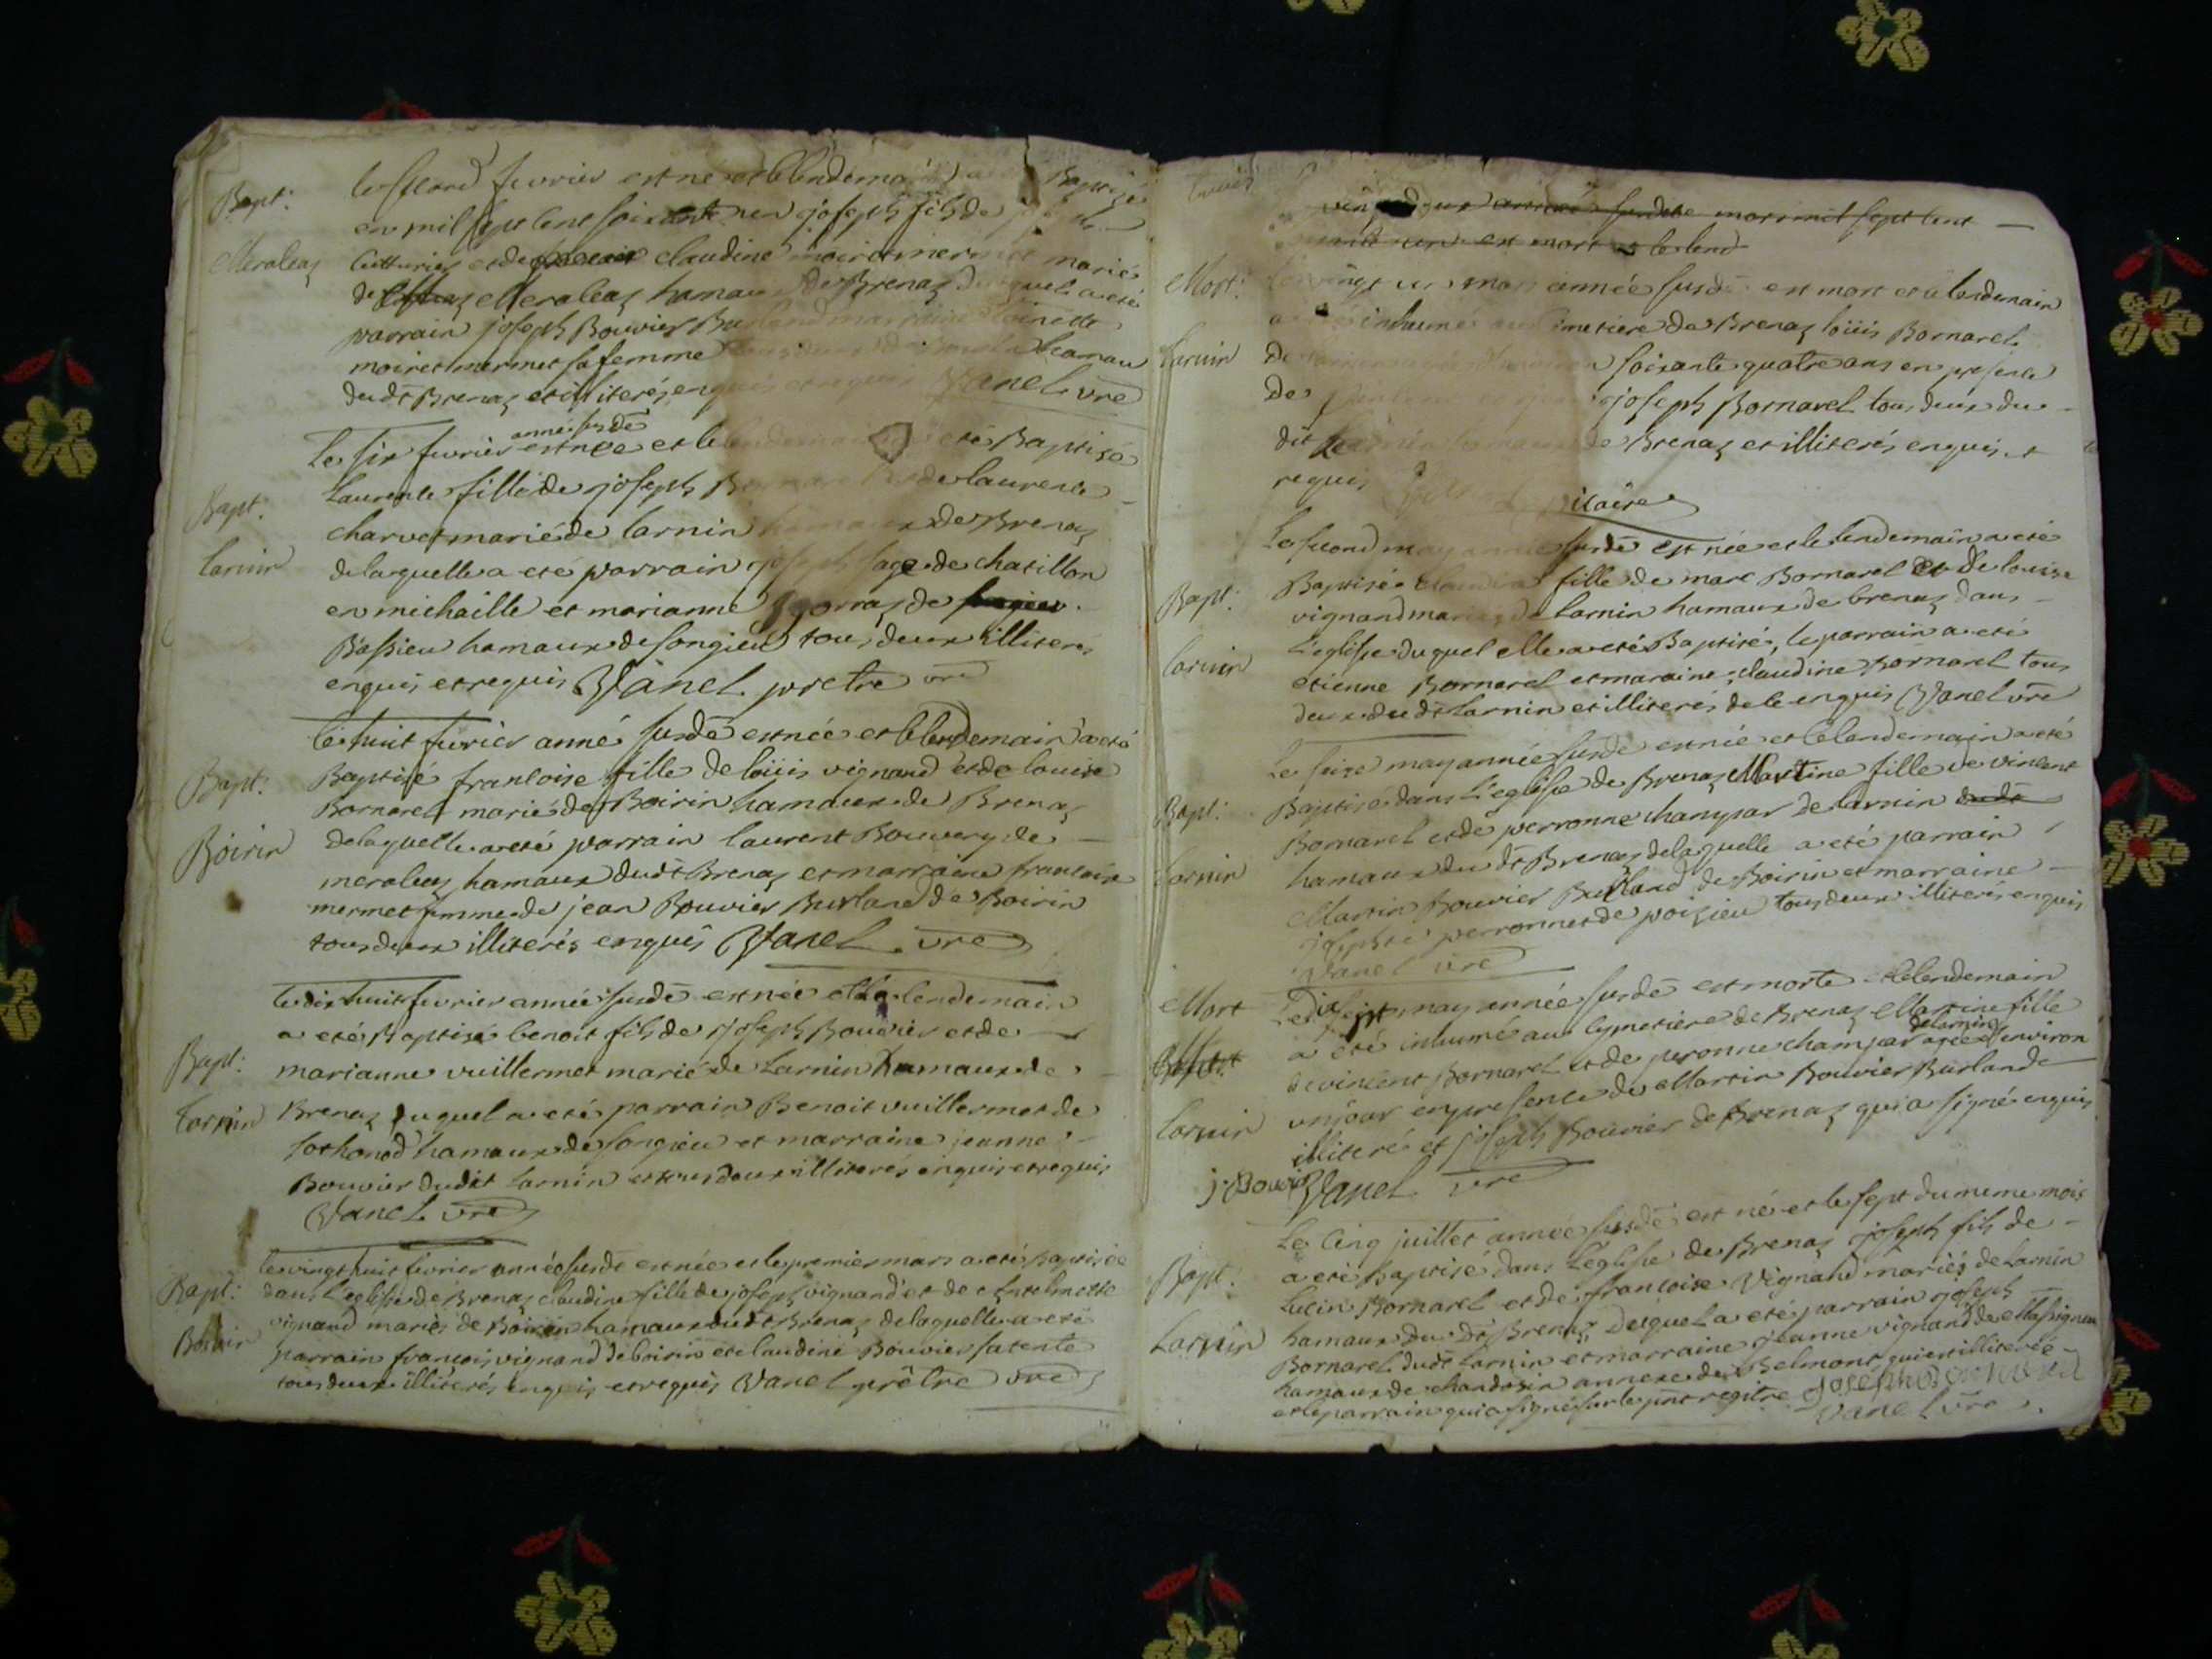 Bapt:
Meraleaz
le second fevrier est né et le lendemain Baptisé
en mil sept cent soixante un joseph fils de
Cutturiez et de claudine moiret mermet mariés
de Meraleaz hamaux de Brenaz duquel a eté
parrain joseph Bouvier Burland marraine
moiret mermet sa femme hamau
dudt Brenaz et illiterés enquis et requis Vanel vre
Bapt:
Larnin
année susde
Le six fevrier est née et le lendemain eté Baptisé
Laurence fille de joseph de laurence
charvet marié de larnin hamaux de Brenaz
delaquelle a eté parrain joseph sage de chatillon
en michaille et marianne gorraz de
Bassieu hamaux de songieu tous deux illiterés
enquis et requis Vanel pretre vre
Bapt:
Boirin
le huit fevrier anné susde est née et le lendemain a eté
Baptisé francoise fille de loüis vignand et de louise
Bornarel marié de Boirin hamaux de Brenaz
delaquelle a eté parrain laurent Bouvery de
meraleaz hamaux dudt Brenaz et marraine francoise
mermet femme de jean Bouvier Burland de Boirin
tous deux illiterés enquis Vanel vre
Bapt:
Larnin
le dix huit fevrier année susde est née et le lendemain
a eté Baptisé benoit fils de joseph Bouvier et de
marianne vuillermet marié de Larnin hamaux de
Brenaz duquel a eté parrain Benoit vuillermet de
sothonod hamaux de songieu et marraine jeanne
Bouvier dudit Larnin et tous deux illiterés enquis et requis
Vanel vre
Bapt:
Boirin
le vingt huit fevrier année susde est née et le premier mars a eté Baptisée
dans l'eglise de Brenaz claudine fille de joseph vignand et de Antelmette
vignand mariés de Boirin hamaux dudt Brenaz delaquelle a eté
parrain francois vignand de boirin et claudine Bouvier sa tente
tous deux illiterés enquis et requis Vanel prêtre vre
vingt deux année susdite mars mil sept cent
un est mort et le lend
Mort:
Larnin
vingt un mars année susde est mort et le lendemain
a eté inhumé au cimetiere de Brenaz loüis Bornarel
de larnin soixante quatre ans en presence
de joseph Bornarel tous deux du
dit de Brenaz et illiterés enquis et
requis vicaire
Bapt:
Larnin
Le second may année susde est née et le lendemain a eté
Baptisé claudine fille de marc Bornarel et de louise
vignand mariez de Larnin hamaux de brenaz dans
L'eglise duquel elle a eté Baptisé, le parrain a eté
etienne Bornarel et maraine claudine Bornarel tous
deux dudt Larnin et illiterés de ce enquis Vanel vre
Bapt:
Larnin
Le seise may année susde est née et le lendemain a eté
Baptisé dans L'eglise de Brenaz Martine fille de vincent
Bornarel et de perronne champar de larnin dudt
hamaux du dt Brenaz delaquelle a eté parrain
Martin Bouvier Burland de Boirin et marraine
josephte perronne de poizieu tous deux illiterés enquis
Vanel vre
Mort
Larnin
Le dix sept may année susde est morte et le lendemain
a eté inhumé au cymetiere de Brenaz Martine fille
de larnin
de vincent Bornarel et de peronne champar agée d'environ
un jour en presence de Martin Bouvier Burland
illiteré et joseph Bouvier de Brenaz qui a signé enquis
j: Bouvier Vanel vre
Bapt:
Larnin
Le Cinq juillet année susde est né et le sept du meme mois
a eté Baptisé dans L'eglise de Brenaz joseph fils de
Lucin Bornarel et de francoise Vignand mariés de Larnin
hamaux du dt Brenaz Duquel a eté parrain joseph
Bornarel dudt Larnin et marraine jeanne vignand de Massignieu
hamaux de chandosin annexe de Belmont qui est illiterée
et le parrain qui a signé sur le pnt regitre joseph Bornarel
Vanel vre